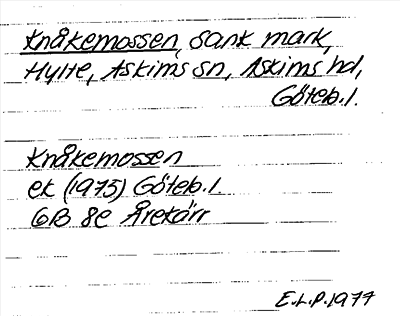 Knåkemossen, sank mark,
Hylte, Askims sn, Askims hd,
Göteb.l.
Knåkemossen
ek (1975) Göteb.l.
6B 8e Årekärr
E.L.P. 1977